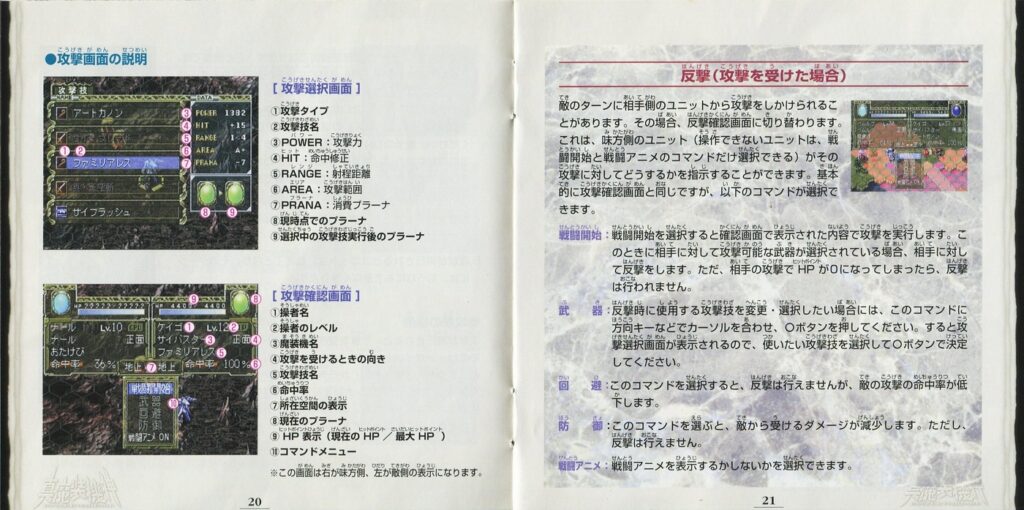 ●攻撃画面の説明
攻撃技
NAME
DATA
アートカノン
ファミリアレス
サイフラッシュ
POWER 1382
HIT +15
RANGE 1-4
AREA A-
PRANA -7
[ 攻撃選択画面 ]
①攻撃タイプ
②攻撃技名
③POWER：攻撃力
④HIT：命中修正
⑤RANGE：射程距離
⑥AREA：攻撃範囲
⑦PRANA：消費プラーナ
⑧現時点でのプラーナ
⑨選択中の攻撃技実行後のプラーナ
HP ????????/????????
HP 4400/ 4400
ナール Lv.10 ケイゴ Lv.12
ナール 正面 サイバスター 正面
おたけび ファミリアレス
命中率 36% 地上 地上 命中率 100%
戦闘開始
武器
回避
防御
戦闘アニメ ON
[ 攻撃確認画面 ]
①操者名
②操者のレベル
③魔装機名
④攻撃を受けるときの向き
⑤攻撃技名
⑥命中率
⑦所在空間の表示
⑧現在のプラーナ
⑨HP 表示（現在の HP ／最大 HP ）
⑩コマンドメニュー
※この画面は右が味方側、左が敵側の表示になります。
20
反撃（攻撃を受けた場合）
敵のターンに相手側のユニットから攻撃をしかけられるこ
とがあります。その場合、反撃確認画面に切り替わります。
これは、味方側のユニット（操作できないユニットは、戦
闘開始と戦闘アニメのコマンドだけ選択できる）がその
攻撃に対してどうするかを指示することができます。基本
的に攻撃確認画面と同じですが、以下のコマンドが選択で
きます。
戦闘開始：戦闘開始を選択すると確認画面で表示された内容で攻撃を実行します。こ
のときに相手に対して攻撃可能な武器が選択されている場合、相手に対し
て反撃をします。ただ、相手の攻撃で HP が0になってしまったら、反撃
は行われません。
武 器：反撃時に使用する攻撃技を変更・選択したい場合には、このコマンドに
方向キーなどでカーソルを合わせ、○ボタンを押してください。すると攻
撃選択画面が表示されるので、使いたい攻撃技を選択して○ボタンで決定
してください。
回 避：このコマンドを選択すると、反撃は行えませんが、敵の攻撃の命中率が低
下します。
防 御：このコマンドを選ぶと、敵から受けるダメージが減少します。ただし、
反撃は行えません。
戦闘アニメ：戦闘アニメを表示するかしないかを選択できます。
21